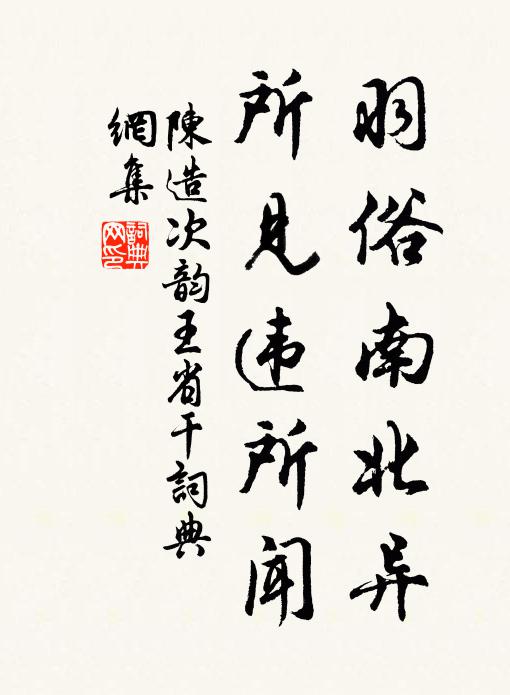 羽俗南北异
所见违所闻
陳造次韵王省干詞典
網集
詞典
网印